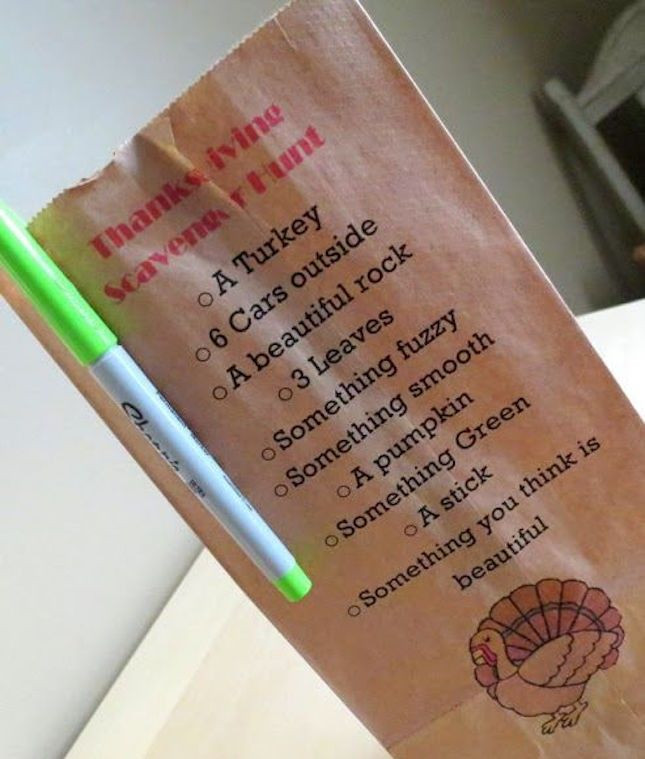 Thanksgiving
Scavenger Hunt
○ A Turkey
○ 6 Cars outside
○ A beautiful rock
○ 3 Leaves
○ Something fuzzy
○ Something smooth
○ A pumpkin
○ Something Green
○ A stick
○ Something you think is
beautiful
Sharpie